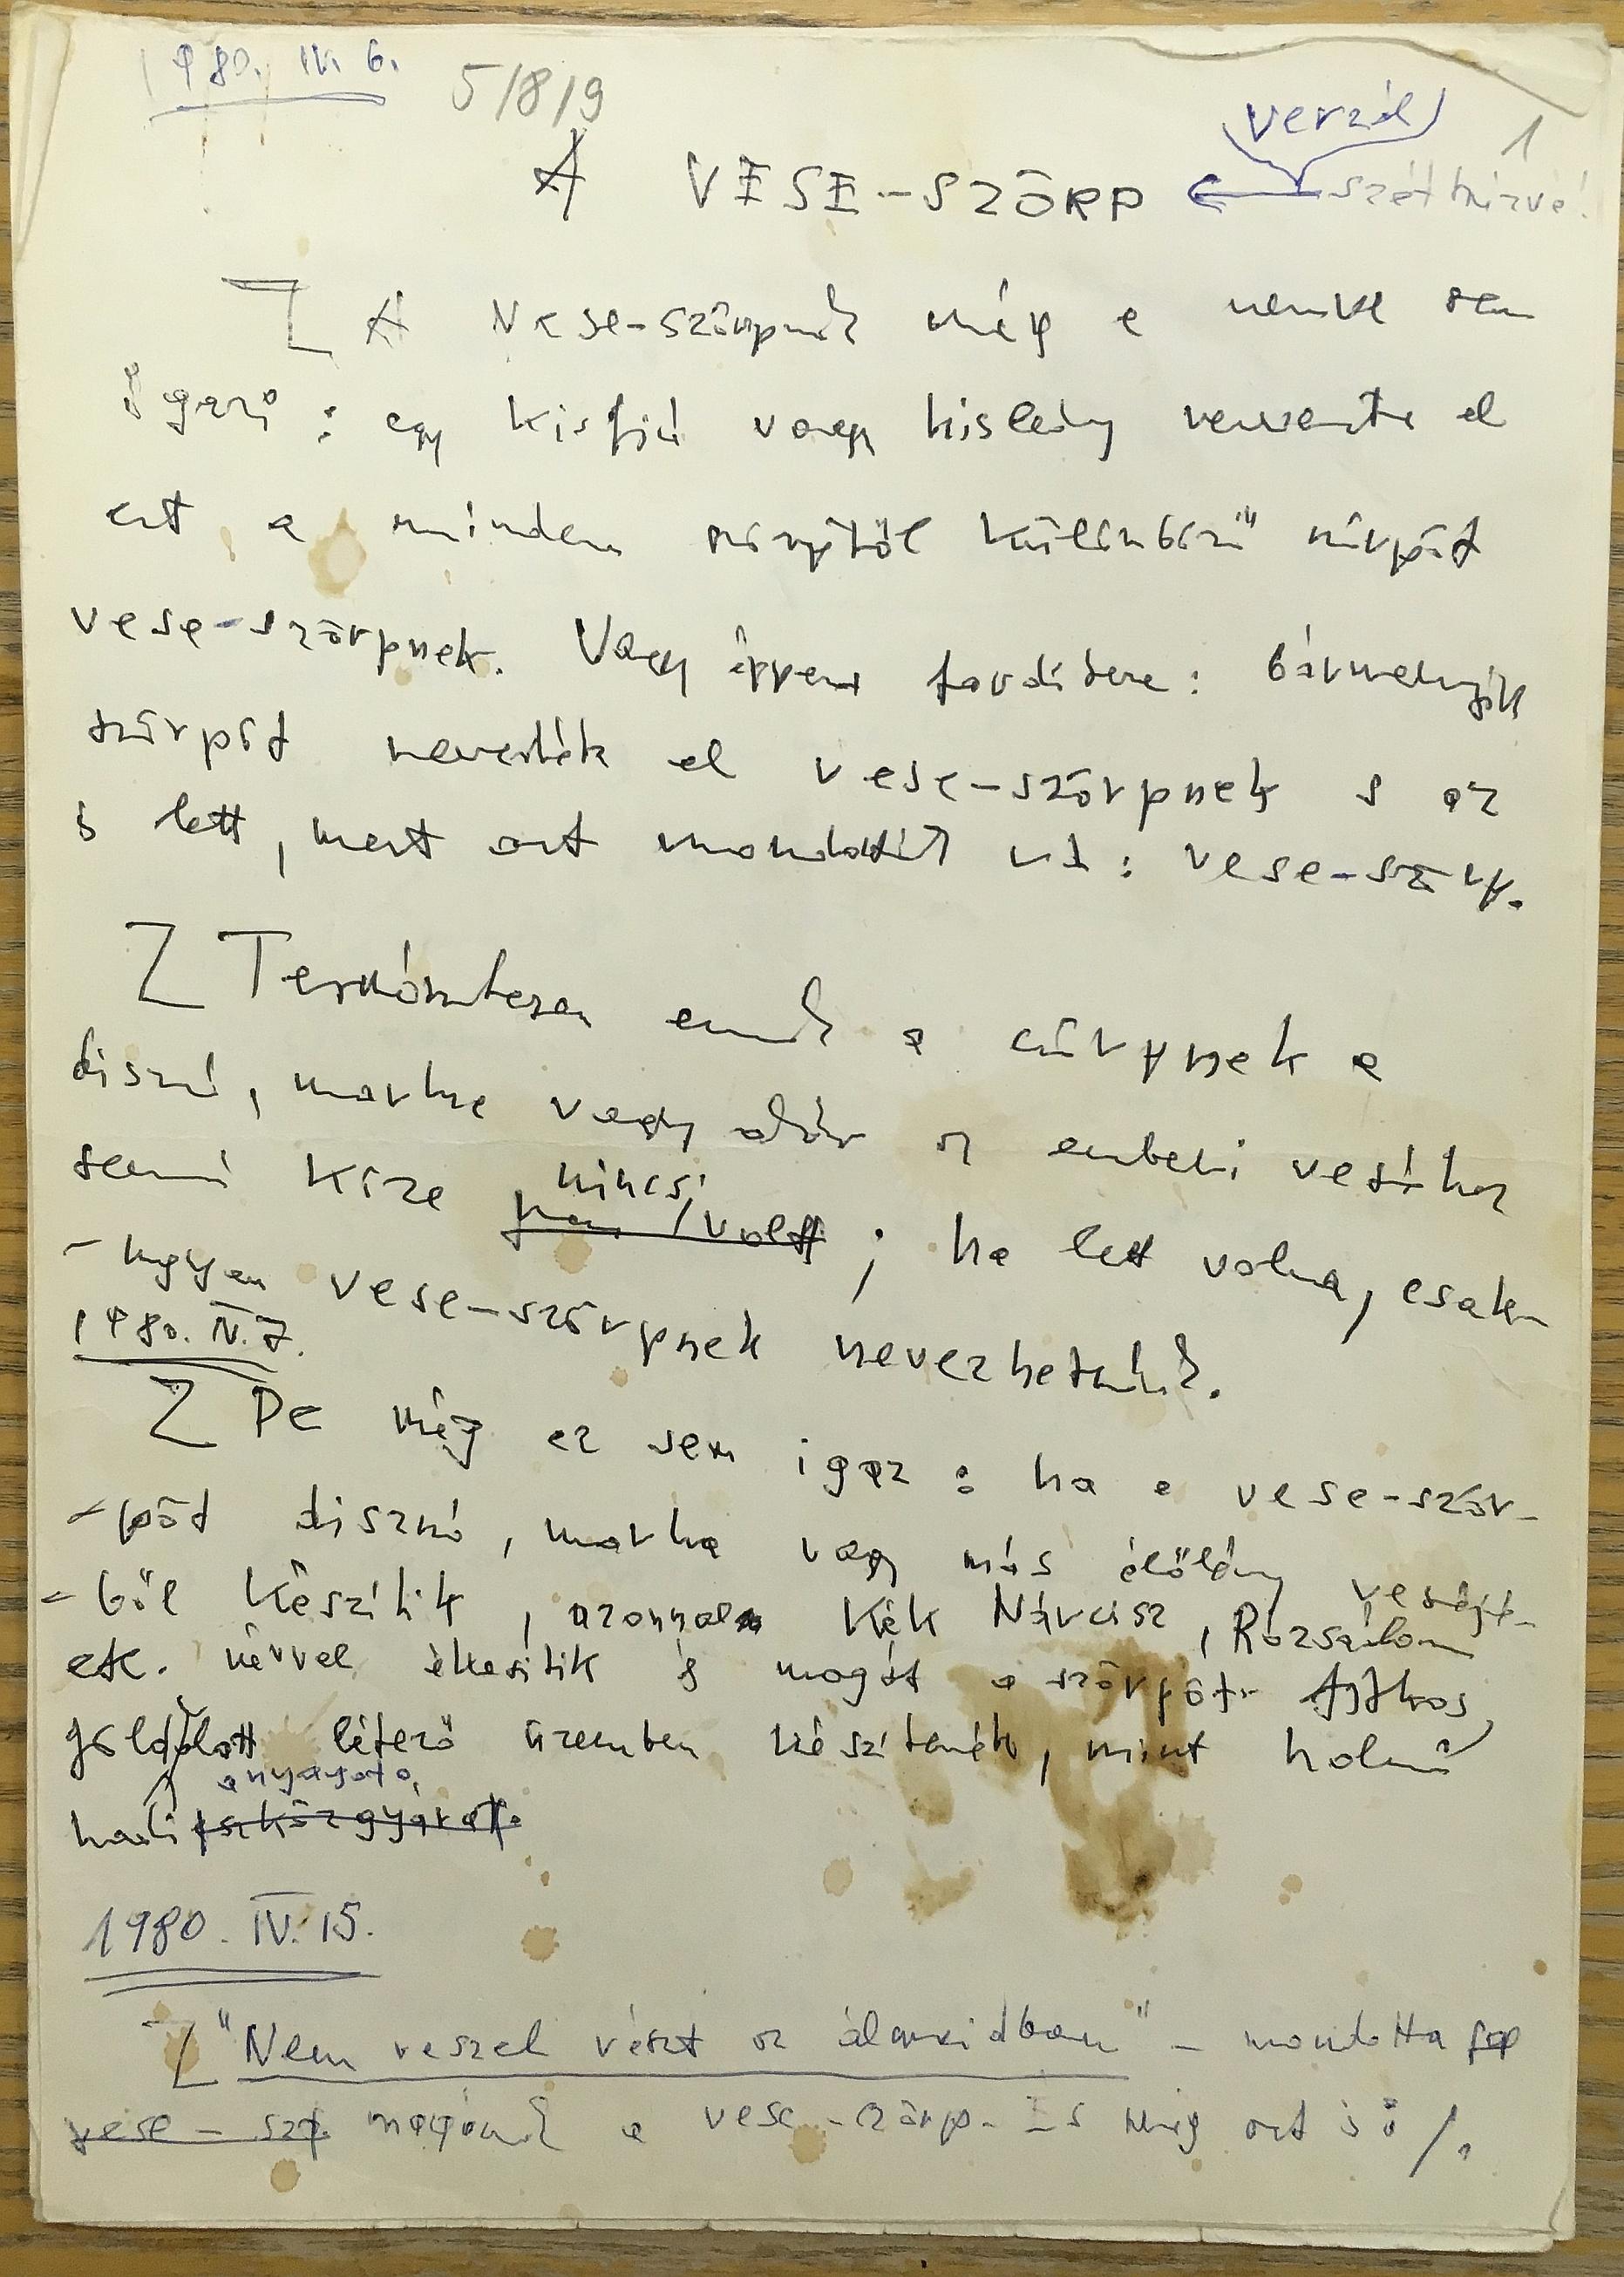 1980. IV. 6.
5/8/9
verzál
1
A VESE-SZÖRP
széthúzva!
A Vese-szörpnek még a neve sem
igazi: egy kisfiú vagy kislány nevezte el
ezt a minden szörptől különböző szörpöt
vese-szörpnek. Vagy éppen fordítva: bármelyik
szörpöt nevezték el vese-szörpnek s az
is lett, mert azt mondták rá: vese-szörp.
Természetesen ennek a szörpnek a
disznó, marha vagy akár az emberi veséhez
semmi köze nincs; volt; ha lett volna, csak-
-ugyan vese-szörpnek nevezhetnék.
1980. IV. 7.
De még ez sem igaz: ha a vese-ször-
-pöt disznó, marha vagy más élőlény veséjé-
-ből készítik, azonnal Kék Nárcisz, Rózsálom
etc. névvel ékesítik s magát a szörpöt titkos,
föld alatt létező üzemben készítenék, mint holmi
anyagot.
hadi eszközgyárat.
1980. IV. 15.
"Nem veszel részt az álmaidban" - mondotta
vese-sz magának a vese-szörp. És még ezt is ő /.